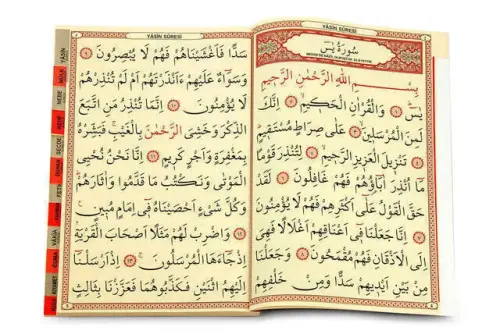 YÂSÎN SÛRESİ
سُورَةُ يٰسٓ
بِسْمِ اللّٰهِ الرَّحْمٰنِ الرَّحِيمِ
يٰسٓ ﴿١﴾ وَالْقُرْاٰنِ الْحَكِيمِ ﴿٢﴾ اِنَّكَ
لَمِنَ الْمُرْسَلِينَ ﴿٣﴾ عَلٰى صِرَاطٍ مُسْتَقِيمٍ
﴿٤﴾ تَنْزِيلَ الْعَزِيزِ الرَّحِيمِ ﴿٥﴾ لِتُنْذِرَ قَوْمًا
مَٓا اُنْذِرَ اٰبَٓاؤُهُمْ فَهُمْ غَافِلُونَ ﴿٦﴾ لَقَدْ
حَقَّ الْقَوْلُ عَلٰٓى اَكْثَرِهِمْ فَهُمْ لَا يُؤْمِنُونَ
﴿٧﴾ اِنَّا جَعَلْنَا فِٓي اَعْنَاقِهِمْ اَغْلَالًا فَهِيَ
اِلَى الْاَذْقَانِ فَهُمْ مُقْمَحُونَ ﴿٨﴾ وَجَعَلْنَا
مِنْ بَيْنِ اَيْدِيهِمْ سَدًّا وَمِنْ خَلْفِهِمْ
YÂSÎN SÛRESİ
سَدًّا فَاَغْشَيْنَاهُمْ فَهُمْ لَا يُبْصِرُونَ ﴿٩﴾
وَسَوَٓاءٌ عَلَيْهِمْ ءَاَنْذَرْتَهُمْ اَمْ لَمْ تُنْذِرْهُمْ
لَا يُؤْمِنُونَ ﴿١٠﴾ اِنَّمَا تُنْذِرُ مَنِ اتَّبَعَ
الذِّكْرَ وَخَشِيَ الرَّحْمٰنَ بِالْغَيْبِ فَبَشِّرْهُ
بِمَغْفِرَةٍ وَاَجْرٍ كَرِيمٍ ﴿١١﴾ اِنَّا نَحْنُ نُحْيِي
الْمَوْتٰى وَنَكْتُبُ مَا قَدَّمُوا وَاٰثَارَهُمْ
وَكُلَّ شَيْءٍ اَحْصَيْنَاهُ فِٓي اِمَامٍ مُبِينٍ
﴿١٢﴾ وَاضْرِبْ لَهُمْ مَثَلًا اَصْحَابَ الْقَرْيَةِ
اِذْ جَٓاءَهَا الْمُرْسَلُونَ ﴿١٣﴾ اِذْ اَرْسَلْنَٓا
اِلَيْهِمُ اثْنَيْنِ فَكَذَّبُوهُمَا فَعَزَّزْنَا بِثَالِثٍ
YÂSİN
MÜLK
NEBE
SECDE
FETİH
VÂKIA
KISMET